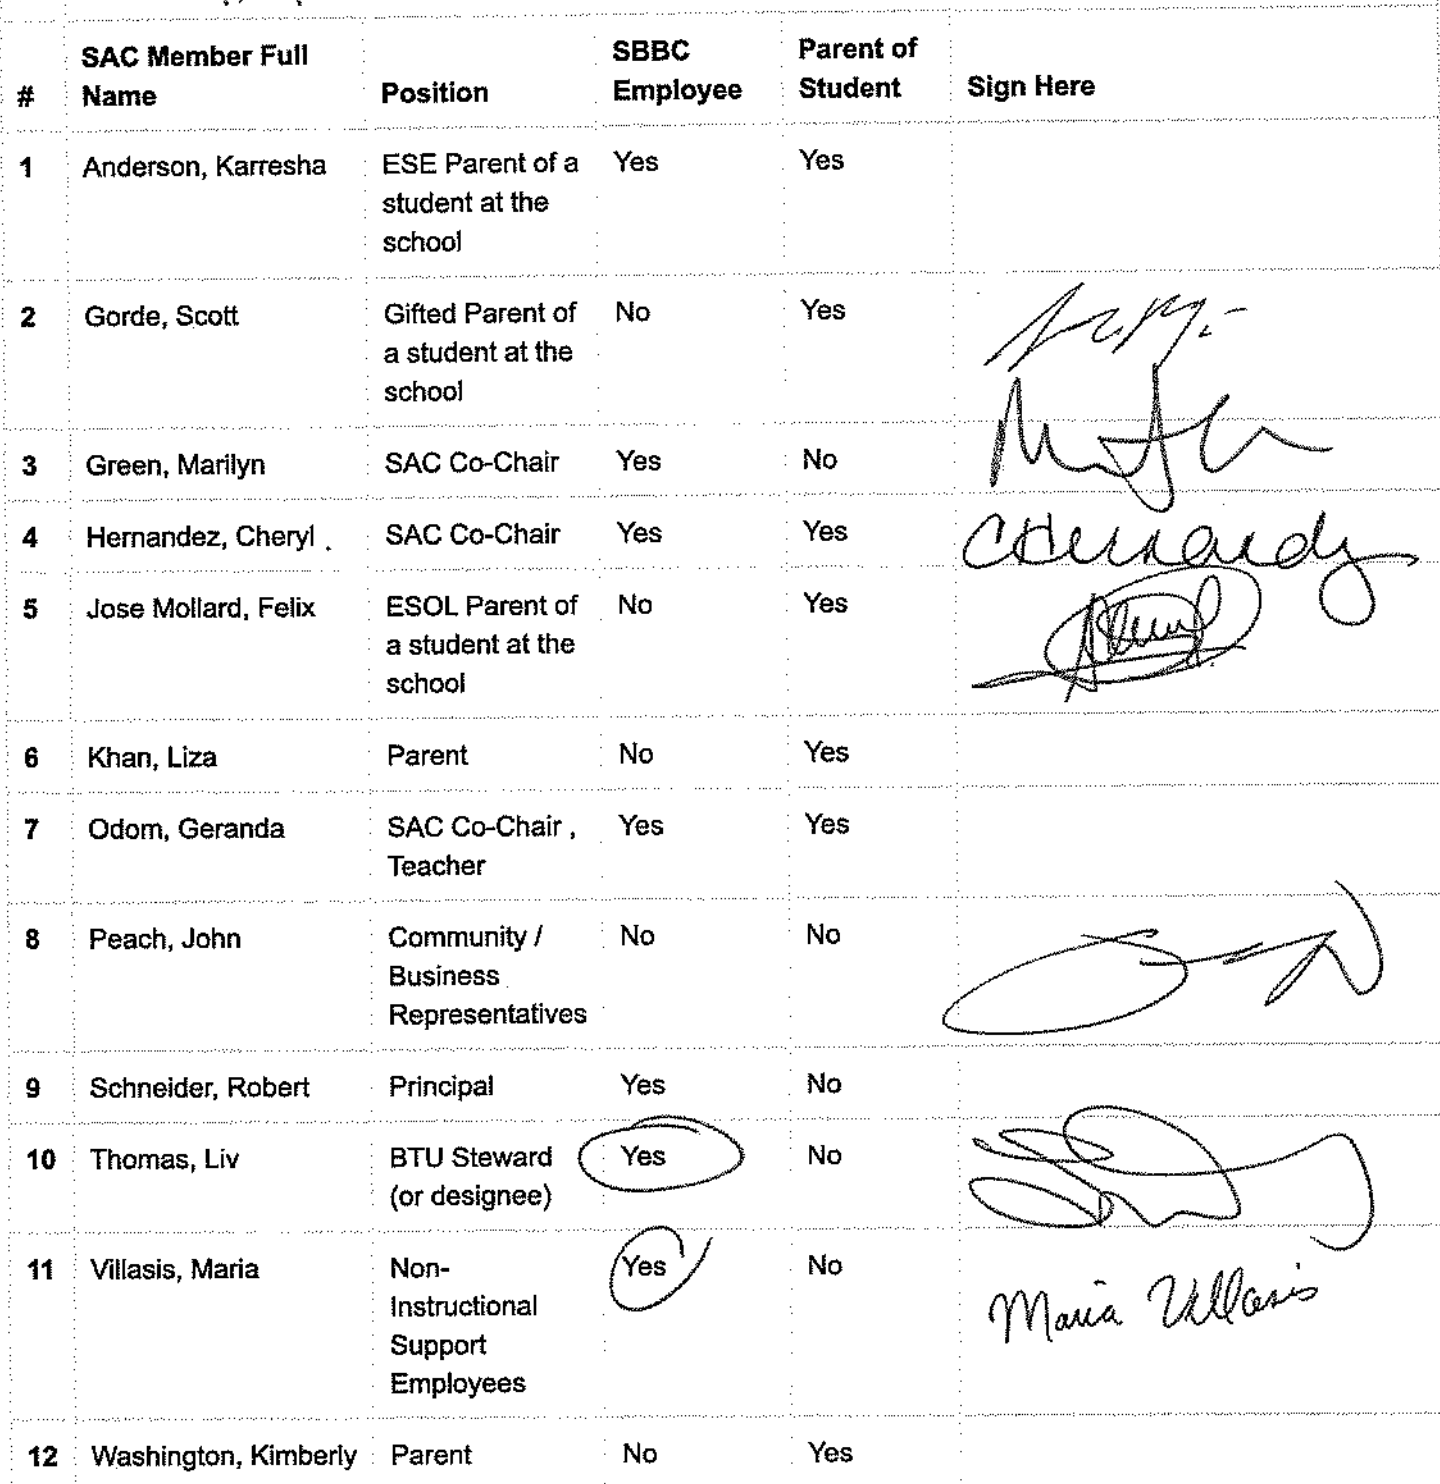 # SAC Member Full Name Position SBBC Employee Parent of Student Sign Here
1 Anderson, Karresha ESE Parent of a Yes Yes
student at the
school
2 Gorde, Scott Gifted Parent of No Yes
a student at the
school
3 Green, Marilyn SAC Co-Chair Yes No
4 Hernandez, Cheryl . SAC Co-Chair Yes Yes CHernandz
5 Jose Mollard, Felix ESOL Parent of No Yes
a student at the
school
6 Khan, Liza Parent No Yes
7 Odom, Geranda SAC Co-Chair , Yes Yes
Teacher
8 Peach, John Community / No No
Business
Representatives
9 Schneider, Robert Principal Yes No
10 Thomas, Liv BTU Steward Yes No
(or designee)
11 Villasis, Maria Non- Yes No Maria Villasis
Instructional
Support
Employees
12 Washington, Kimberly Parent No Yes